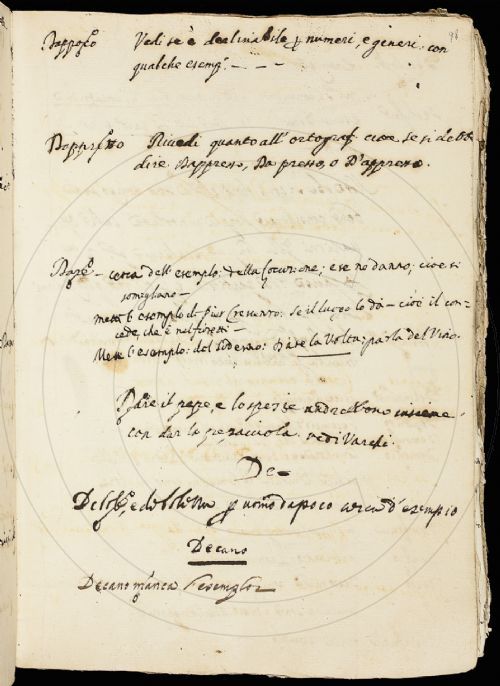 Vedi se è declinabile p numeri, e generi con
qualche esemp.
Rivedi quanto all' ortograf. cioè se si debba
dire Dappresso, Da presso, o D'appresso.
cerca dell' esemplo: della locuzione; e se no danno; cioè si
somigliano
esemplo di Pier Crescenzo: se il luogo lo dà cioè il con-
cede, che è nel
esemplo: del Soderino: Dare la Volta: parla del Vino.
Dare il pepe, e le spezie andrebbono insieme
con dar la vedi Varchi.
De
p uomo dapoco cerca d' esempio
Decano
Decano manca l'esemplo